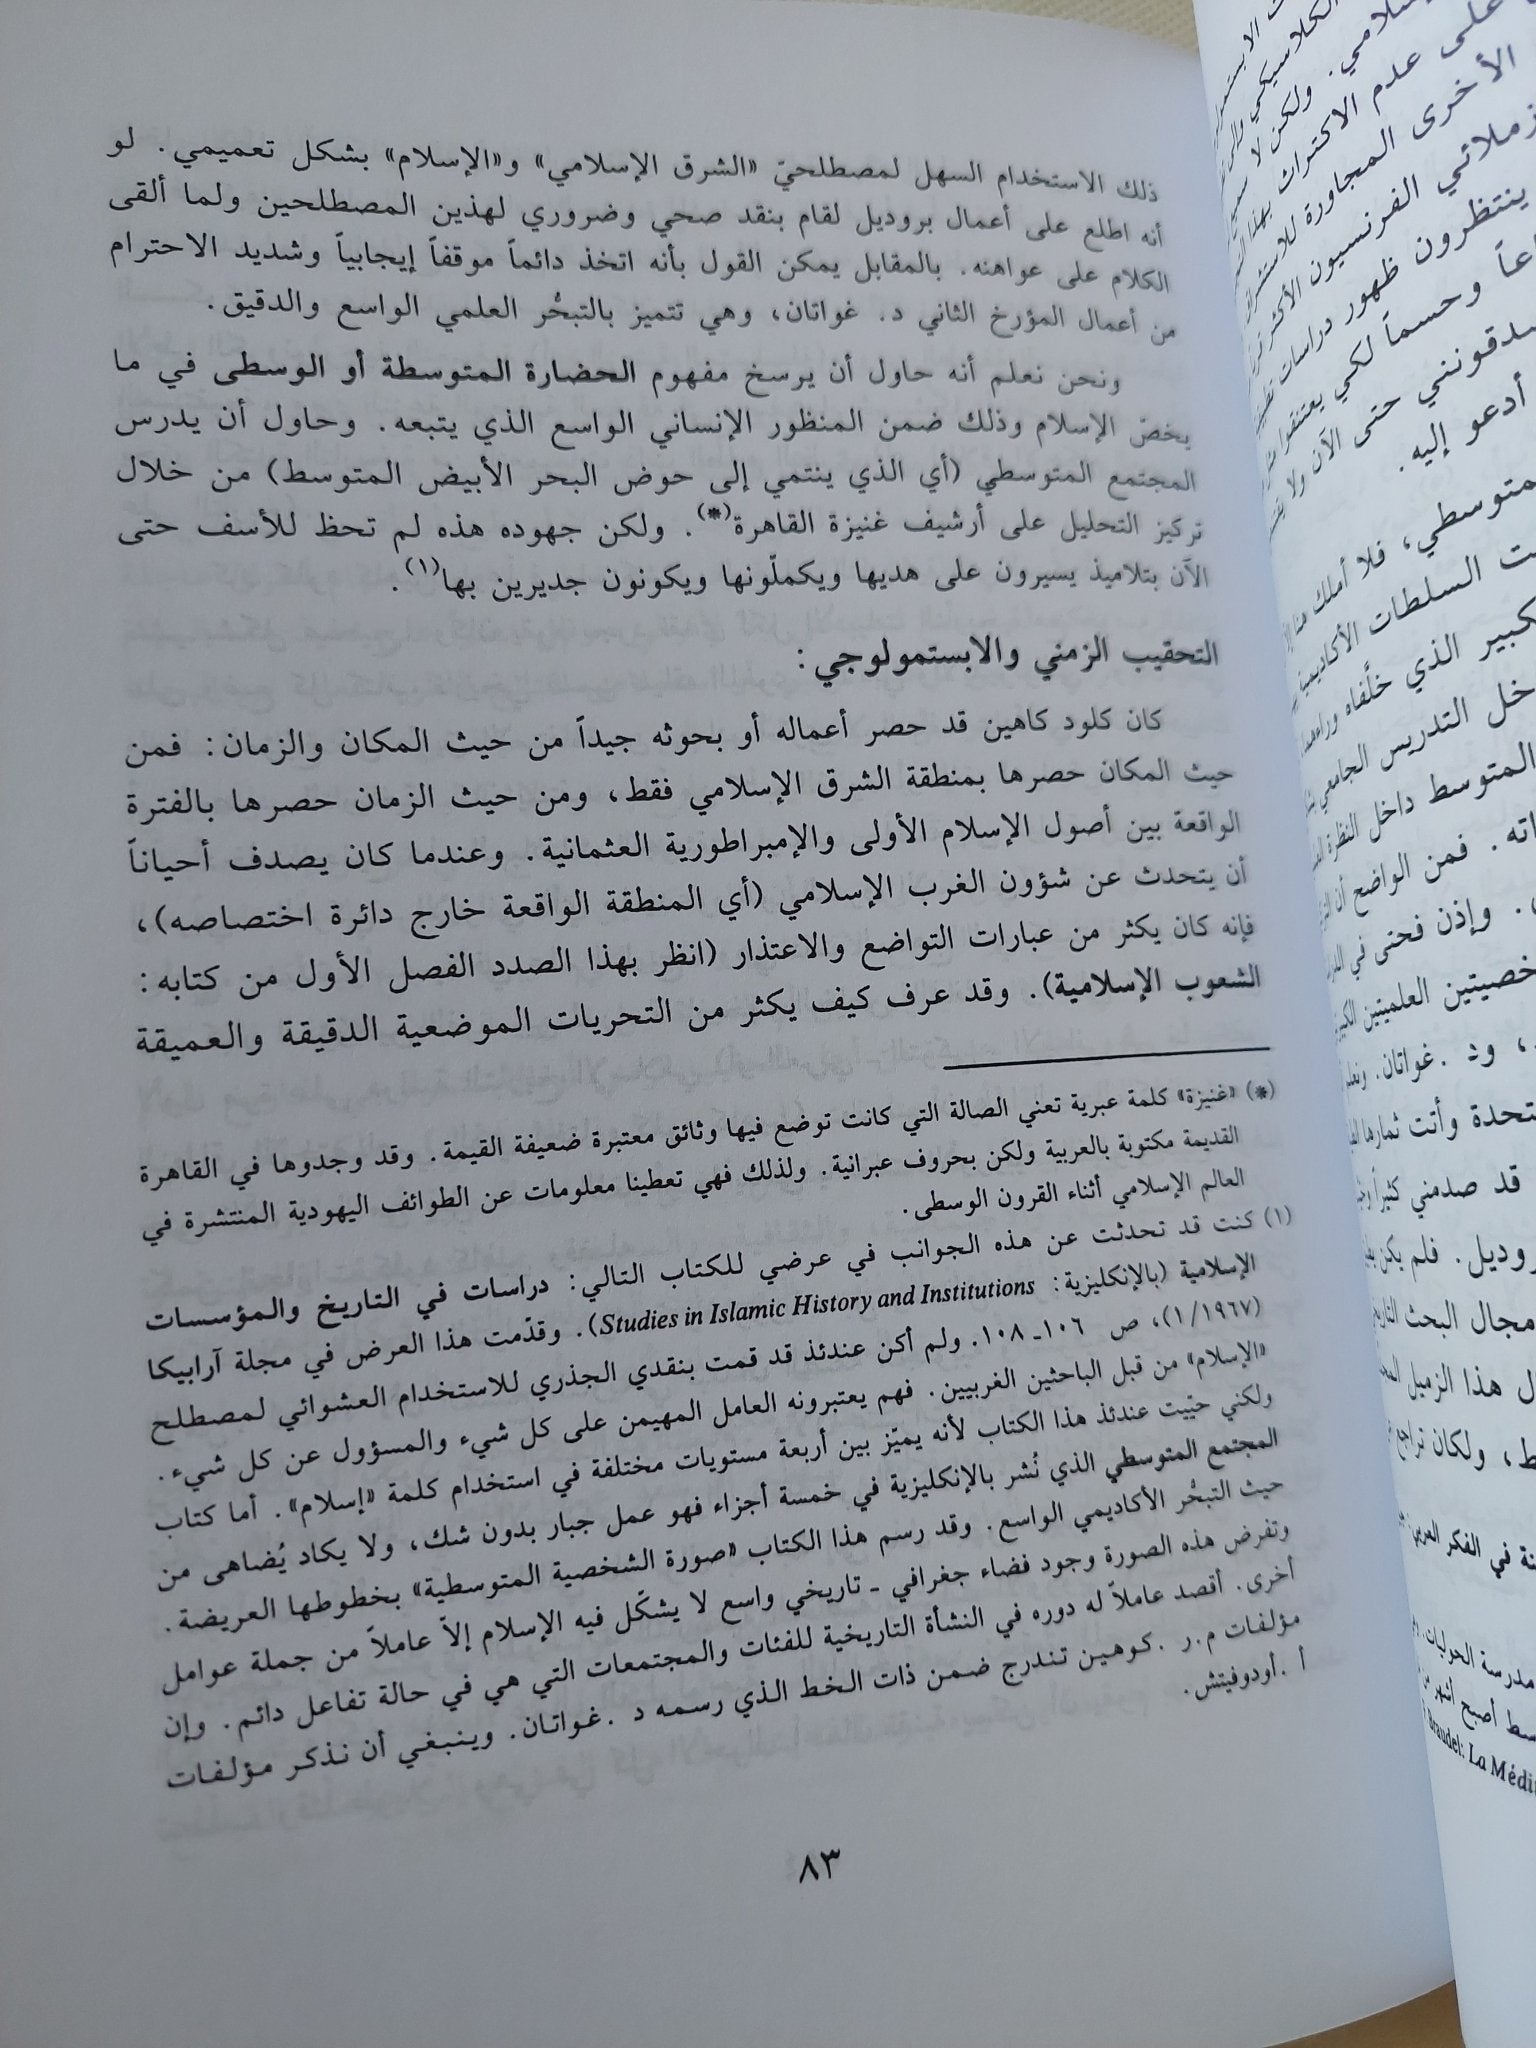 ذلك الاستخدام السهل لمصطلحيّ «الشرق الإسلامي» و«الإسلام» بشكل تعميمي. لو
أنه اطلع على أعمال بروديل لقام بنقد صحي وضروري لهذين المصطلحين ولما ألقى
الكلام على عواهنه. بالمقابل يمكن القول بأنه اتخذ دائماً موقفاً إيجابياً وشديد الاحترام
من أعمال المؤرخ الثاني د. غواتان، وهي تتميز بالتبحُّر العلمي الواسع والدقيق.
ونحن نعلم أنه حاول أن يرسخ مفهوم الحضارة المتوسطة أو الوسطى في ما
يخصّ الإسلام وذلك ضمن المنظور الإنساني الواسع الذي يتبعه. وحاول أن يدرس
المجتمع المتوسطي (أي الذي ينتمي إلى حوض البحر الأبيض المتوسط) من خلال
تركيز التحليل على أرشيف غنيزة القاهرة(*). ولكن جهوده هذه لم تحظ للأسف حتى
الآن بتلاميذ يسيرون على هديها ويكملّونها ويكونون جديرين بها(١).
التحقيب الزمني والابستمولوجي:
كان كلود كاهين قد حصر أعماله أو بحوثه جيداً من حيث المكان والزمان: فمن
حيث المكان حصرها بمنطقة الشرق الإسلامي فقط، ومن حيث الزمان حصرها بالفترة
الواقعة بين أصول الإسلام الأولى والإمبراطورية العثمانية. وعندما كان يصدف أحياناً
أن يتحدث عن شؤون الغرب الإسلامي (أي المنطقة الواقعة خارج دائرة اختصاصه)،
فإنه كان يكثر من عبارات التواضع والاعتذار (انظر بهذا الصدد الفصل الأول من كتابه:
الشعوب الإسلامية). وقد عرف كيف يكثر من التحريات الموضعية الدقيقة والعميقة
(*) «غنيزة» كلمة عبرية تعني الصالة التي كانت توضع فيها وثائق معتبرة ضعيفة القيمة. وقد وجدوها في القاهرة
القديمة مكتوبة بالعربية ولكن بحروف عبرانية. ولذلك فهي تعطينا معلومات عن الطوائف اليهودية المنتشرة في
العالم الإسلامي أثناء القرون الوسطى.
(١) كنت قد تحدثت عن هذه الجوانب في عرضي للكتاب التالي: دراسات في التاريخ والمؤسسات
الإسلامية (بالإنكليزية: Studies in Islamic History and Institutions). وقدّمت هذا العرض في مجلة آرابيكا
(١/١٩٦٧)، ص ١٠٦-١٠٨. ولم أكن عندئذ قد قمت بنقدي الجذري للاستخدام العشوائي لمصطلح
«الإسلام» من قبل الباحثين الغربيين. فهم يعتبرونه العامل المهيمن على كل شيء والمسؤول عن كل شيء.
ولكني حيّيت عندئذ هذا الكتاب لأنه يميّز بين أربعة مستويات مختلفة في استخدام كلمة «إسلام». أما كتاب
المجتمع المتوسطي الذي نُشر بالإنكليزية في خمسة أجزاء فهو عمل جبار بدون شك، ولا يكاد يُضاهى من
حيث التبحُّر الأكاديمي الواسع. وقد رسم هذا الكتاب «صورة الشخصية المتوسطية» بخطوطها العريضة.
وتفرض هذه الصورة وجود فضاء جغرافي - تاريخي واسع لا يشكّل فيه الإسلام إلاّ عاملاً من جملة عوامل
أخرى. أقصد عاملاً له دوره في النشأة التاريخية للفئات والمجتمعات التي هي في حالة تفاعل دائم. وإن
مؤلفات م.ر .كوهين تندرج ضمن ذات الخط الذي رسمه د .غواتان. وينبغي أن نذكر مؤلفات
أ .أودوفيتش.
٨٣
على عدم الاكتراث بهذا
الأخرى المجاورة للاستشراق
زملائي الفرنسيون الأكثر
ينتظرون ظهور دراسات
وحسماً لكي يعتنقوا
حتى الآن ولا
أدعو إليه.
فلا أملك هنا
السلطات الأكاديمية
الذي خلَّفاه وراءهما
التدريس الجامعي
المتوسط داخل النظرة
فمن الواضح أن
وإذن فحتى في
العلميتين
ود .غواتان.
وأتت ثمارها
قد صدمني كثيراً
فلم يكن
مجال البحث
هذا الزميل
ولكان تراجع
في الفكر
مدرسة الحوليات.
أصبح أشهر من
Braudel: La Médit